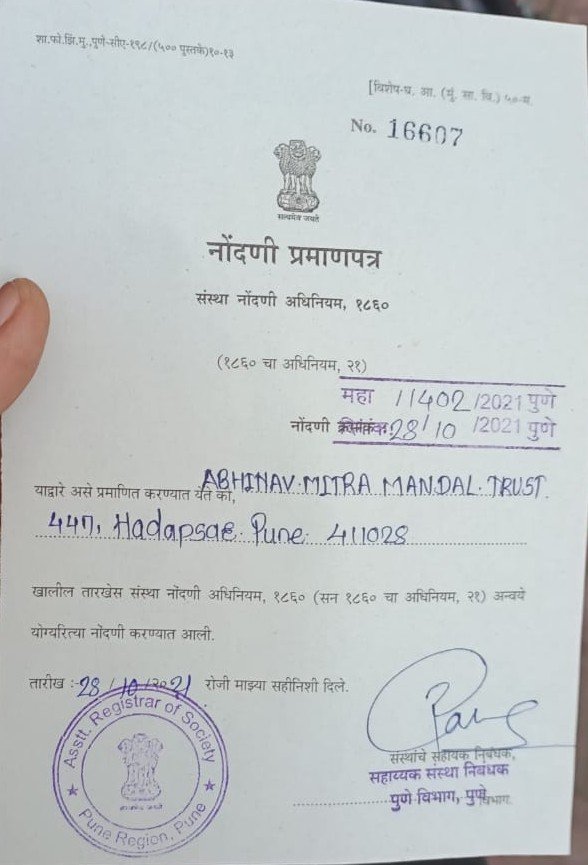 शा.फो.झिं.मु.,पुणे-सीए-१९८/(५०० पुस्तके)१०-१३
[विशेष-घ. आ. (मुं. सा. वि.) ५०-म.
No. 16607
सत्यमेव जयते
नोंदणी प्रमाणपत्र
संस्था नोंदणी अधिनियम, १८६०
(१८६० चा अधिनियम, २१)
महा 11402/2021 पुणे
नोंदणी 28/10/2021 पुणे
याद्वारे असे प्रमाणित करण्यात येते की, ABHINAV MITRA MANDAL TRUST.
447, Hadapsae Pune 411028
खालील तारखेस संस्था नोंदणी अधिनियम, १८६० (सन १८६० चा अधिनियम, २१) अन्वये
योग्यरित्या नोंदणी करण्यात आली.
तारीख :-28/10/2021 रोजी माझ्या सहीनिशी दिले.
Asstt. Registrar of Society
Pune Region, Pune
संस्थांचे सहायक निबंधक,
सहाय्यक संस्था निबंधक
पुणे विभाग, पुणे